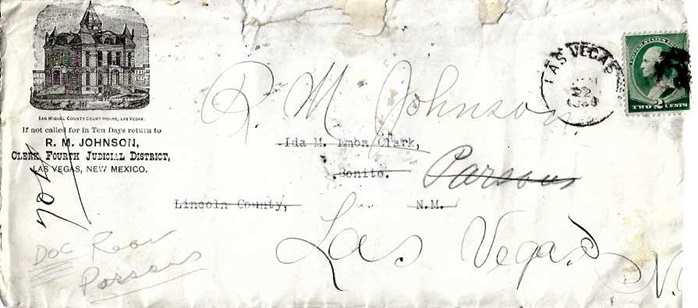 SAN MIGUEL COUNTY COURT HOUSE, LAS VEGAS.
If not called for in Ten Days return to
R. M. JOHNSON,
CLERK FOURTH JUDICIAL DISTRICT,
LAS VEGAS, NEW MEXICO.
LAS VEGAS
22
TWO CENTS
R. M. Johnson
Ida M. Clark,
Bonito. Parsons
Lincoln County, N.M.
Las Vegas
N.
Doc Rear
Parsons